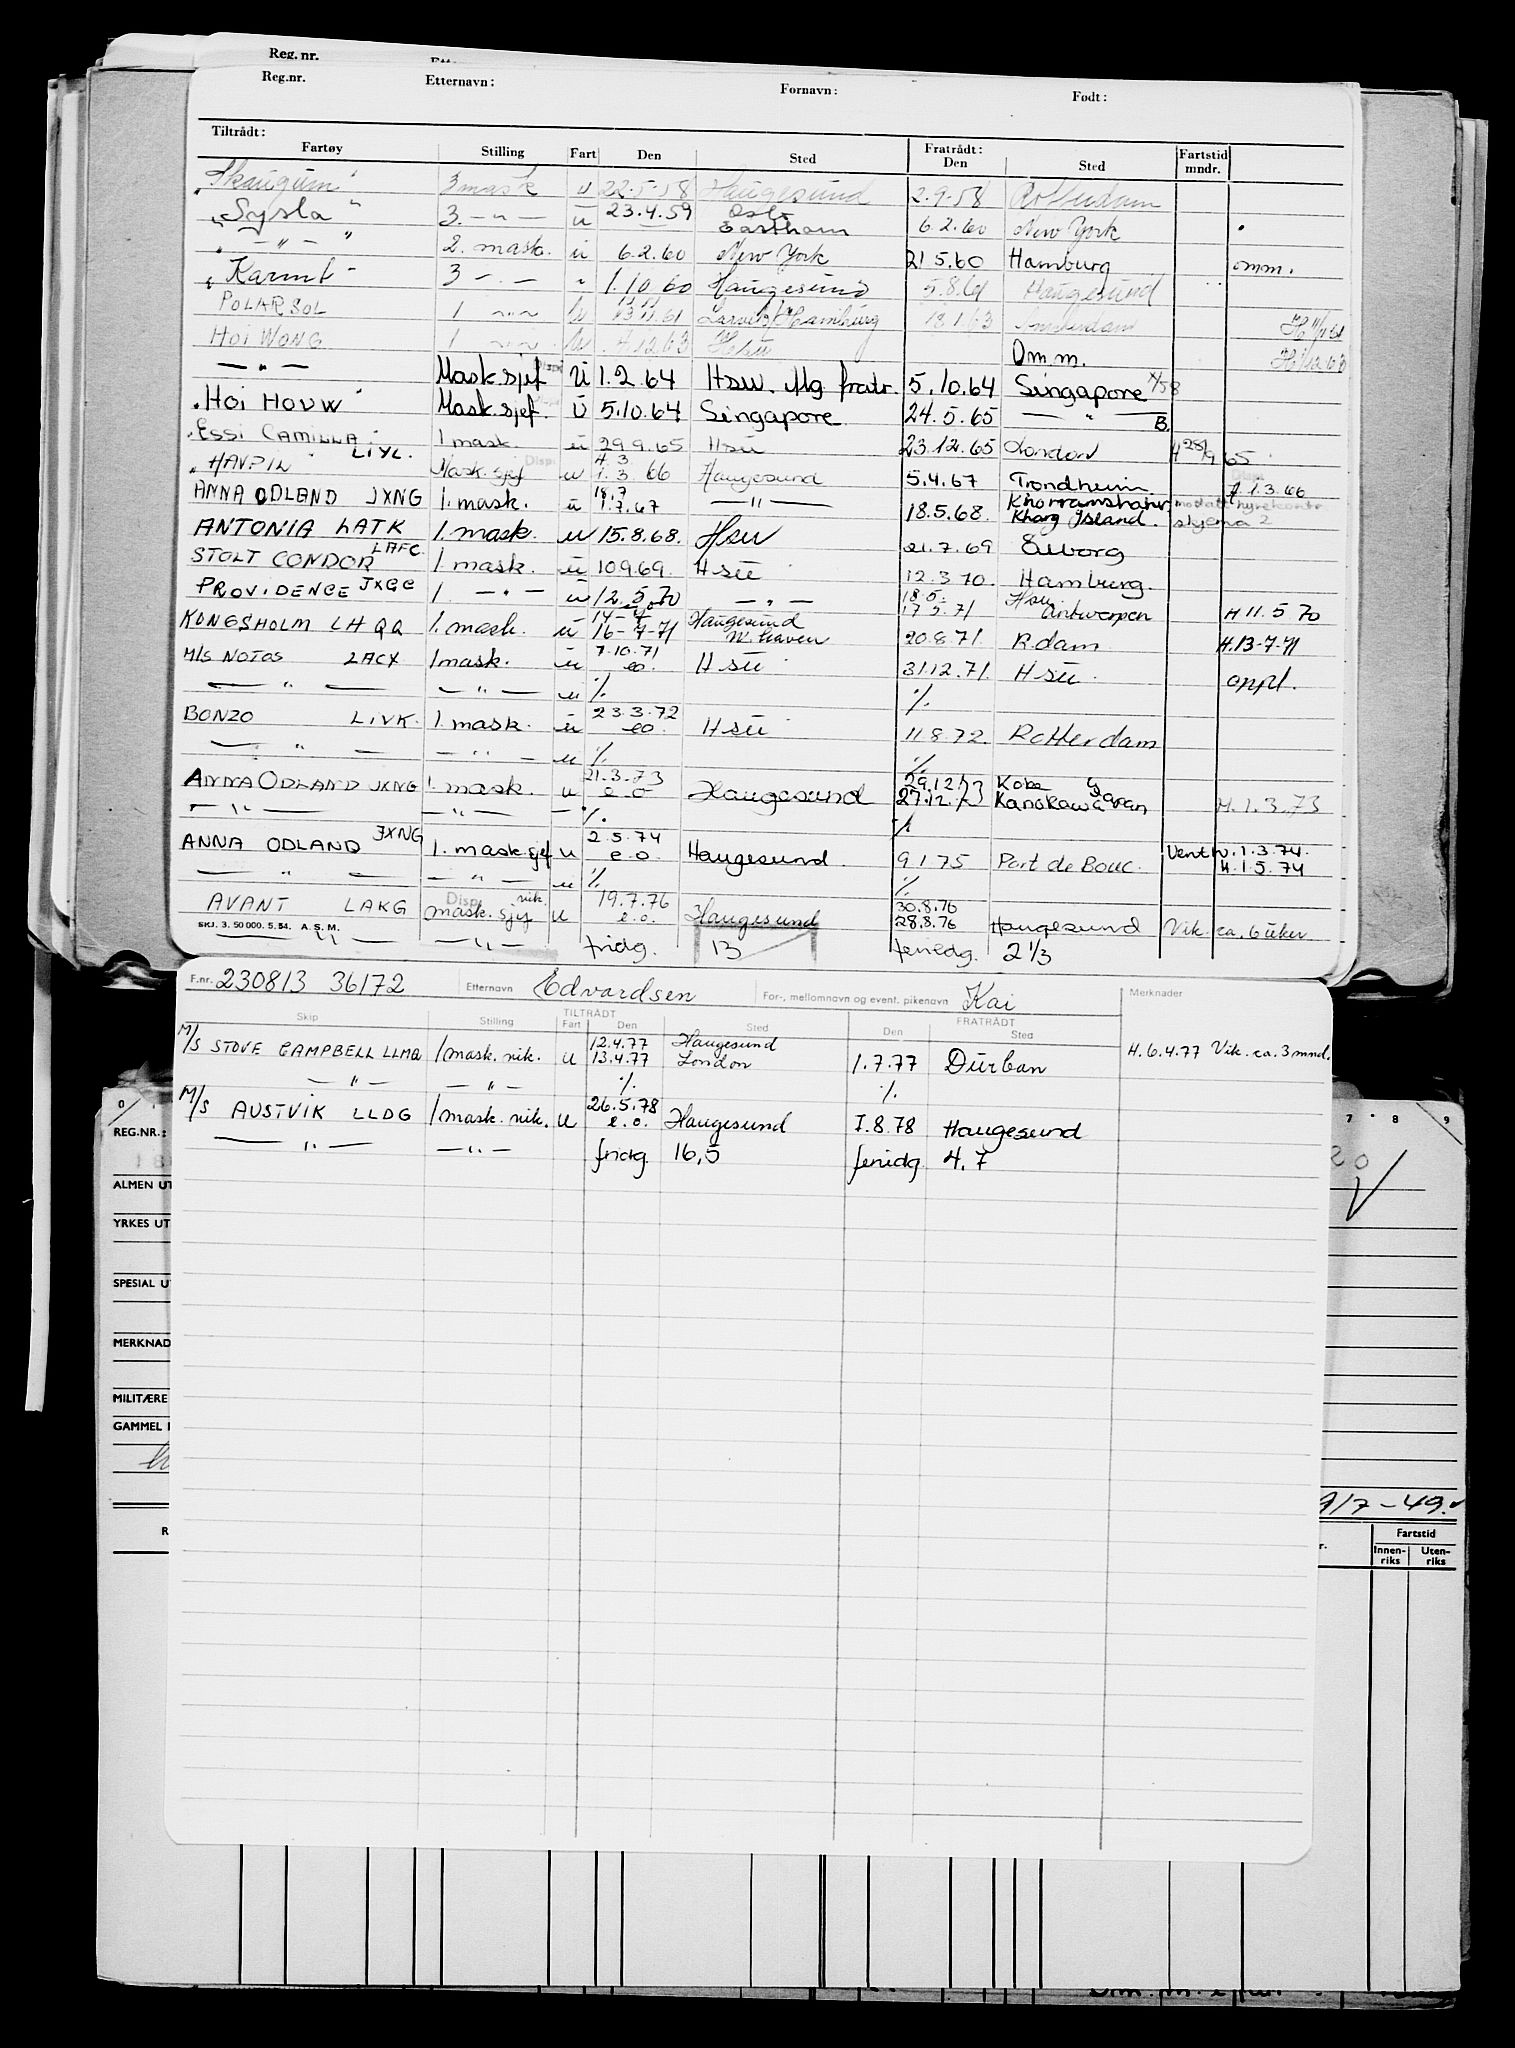 Reg. nr.
Reg.nr. Etternavn: Fornavn: Født:
Tiltrådt: Fratrådt: Fartstid
Fartøy Stilling Fart Den Sted Den Sted mndr.
"Skaugum" 3 mask u 22.5.58 Haugesund 2.9.58 Rotterdam
"Sysla" 3. -"- ü 23.4.59 Oslo Eastham 6.2.60 New York
" -"- " 2. mask. ü 6.2.60 New York 21 5.60 Hamburg omm.
"Karmt" 3 -"- " 1.10 60 Haugesund 5.8.61 Haugesund
POLARSOL 1 -"- u 13.11.61 Larvik/Hamburg 18 1.63 Amsterdam
HOI WONG 1 -"- u 4.12.63 Hsü Omm.
-"- Mask.sjef Ü 1.2.64 Hsu. Mg. fratr. 5.10.64 Singapore
"HOI HOUW" Mask.sjef. Ü 5.10.64 Singapore 24.5.65 -"- B.
"ESSI CAMILLA" LIYL. 1 mask. ü 29 9.65 Hsü 23.12.65 London H 28/9 65
"HAVPIL" Mask.sjef Disp. u 4.3. 1.3.66 Haugesund 5.4.67 Trondheim 1.3.66
ANNA ODLAND JXNG 1. mask. ü 18.7 1.7.67 -"- 18.5.68. Khorramshahr Kharg Island. skjema 2
ANTONIA LATK 1. mask. u 15.8.68. Hsu 21.7.69
STOLT CONDOR LAFC. 1 mask. ü 10 9 69. Hsü 12.3 70. Hamburg.
PROVIDENCE JXGC 1. -"- ü 12.5.70 -"- 18.5. 17 5.71 Hsu Antwerpen H 11.5 70
KONGSHOLM LHQQ 1. mask. ü 14- 16-7-71 Haugesund W. haven 20.8.71. R.dam H.13-7-71
M/S NOTOS LACX 1 mask. ü 7.10.71 eo. Hsü 31.12.71. Hsü. oppl.
-"- -"- u % %
BONZO LIVK. 1. mask. ü 23.3.72 eo. Hsü 11 8.72. Rotterdam
-"- -"- u % %
ANNA ODLAND JXNG 1. mask. u 21.3.73 e.o Haugesund 29.12.73 27.12.73 Kobe Kanokawa Japan H.1.3.73
-"- -"- - % %
ANNA ODLAND JXNG 1. mask sjef u 2.5.74 e.o. Haugesund. 9.1 75 Port de Bouc. Vent. 1.3.74. H.1.5.74
-"- -"- u % %
AVANT LAKG Disp. mask. sjef vik. u 19.7.76 e.o. Haugesund 30.8.76 28.8.76 Haugesund Vik. ca. 6 uker
SKJ. 3. 50 000. 5. 54. A. S. M.
-"- -"- fridg. 13 feriedg. 2 1/3
F.nr. 230813 36172 Etternavn Edvardsen For-, mellomnavn og event. pikenavn Kai Merknader
TILTRÅDT FRATRÅDT
Skip Stilling Fart Den Sted Den Sted
M/S STOVE CAMPBELL LLMQ 1 mask. vik. u 12.4.77 13.4.77 Haugesund London 1.7.77 Durban H.6.4.77 Vik. ca. 3 mnd.
-"- -"- % %
M/S AUSTVIK LLDG 1 mask. vik. u 26.5.78 e.o. Haugesund 1.8.78 Haugesund
-"- -"- fridg. 16,5 feriedg. 4,7
0 7 8 9
REG.NR.:
ALMEN UT
YRKES UT
SPESIAL U
MERKNAD
MILITÆRE
GAMMEL
7-49.
R
Fartstid
Innen-riks Uten-riks